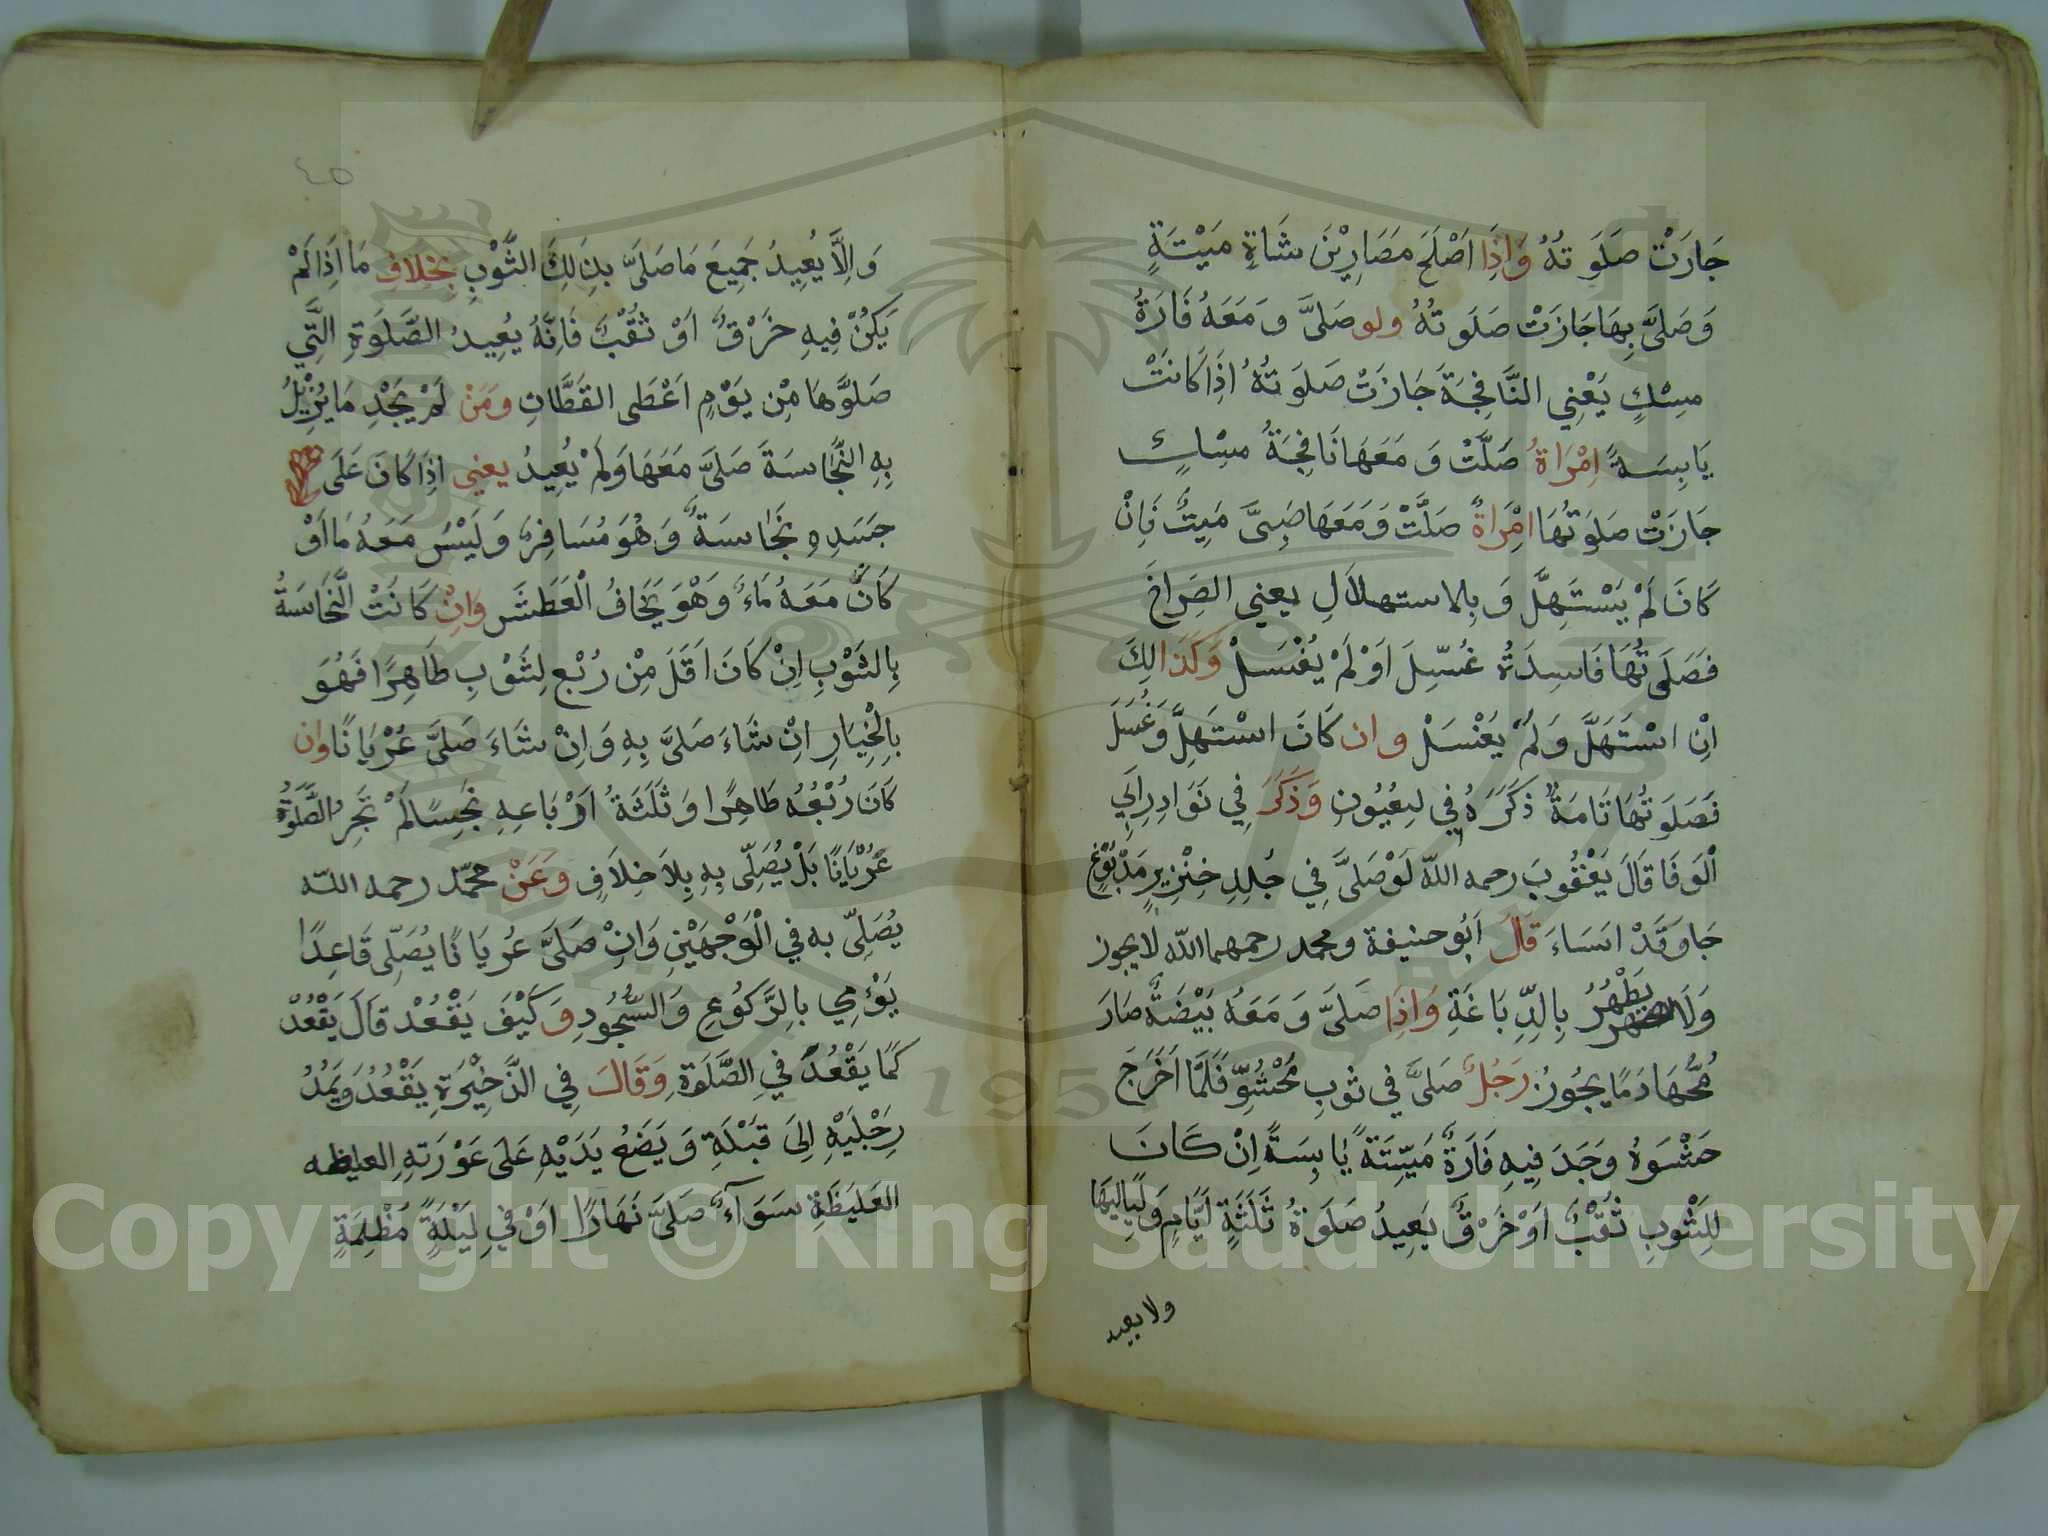 جَازَتْ صَلَوتُهُ وَاِذَا اَصْلَحَ مَصَارِيْنَ شَاةٍ مَيْتَةٍ
وَصَلىَّ بِهَا جَازَتْ صَلَوتُهُ ولو صَلىَّ وَمَعَهُ فَارَةُ
مِسْكٍ يَعْنِي النَّافِجَةَ جَازَتْ صَلَوتُهُ اِذَا كَانَتْ
يَابِسَةً اِمْرَاةُ صَلَّتْ وَمَعَهَا نَافِجَةُ مِسْكٍ
جَازَتْ صَلَوتُهَا اِمْرَاةٌ صَلَّتْ وَمَعَهَا صَبِىَّ مَيِتٌ فَاِنْ
كَانَ لَمْ يَسْتَهِلَّ وَبِالاستهلاَلِ يعني الصَرَاخَ
فَصَلَوتُهَا فَاسِدَةُ غُسِّلَ اَوْ لَمْ يُغْسَلْ وَكَذَالِكَ
اِنْ اسْتَهَلَّ وَلَمْ يُغْسَلْ وان كَانَ اسْتَهِلَّ وَغُسِّلَ
فَصَلَوتُهَا تَامَةٌ ذَكَرَهُ فِي لعُيُونِ وَذَكَرَ فِي نَوَادِرِ اَبِي
الْوَفَا قَالَ يَعْقُوبَ رحمه اللّه لَوْ صَلىَّ فِي جُلدِ خِنْزِيرٍ مَدْبُوْغٍ
جَاوَقَدْ اسَاءَ قَالَ اَبُو حنيفة ومحمد رحمهما اللّه لا يجوز
وَلَا يَطْهُرُ بِالدِّبَاغَةِ وَاِذَا صَلىَّ وَمَعَهُ بَيْضَةٌ صَارَ
مُحُّهَا دَمًا يجُوزُ رَجُلٌ صَلىَّ فِي ثوبٍ مَحْشُوٍّ فَلَمَّا اَخْرَجَ
حَشْوَهُ وَجَدَ فِيهِ فَارَةً مَيِّتَةً يَابِسَةً اِنْ كَانَ
لِلثَّوْبِ ثُقْبٌ اَوْ خَرْقٌ يُعِيدُ صَلَوةُ ثَلَثَةٍ اَيَّامٍ وَلَيَالِيهَا
ولا يعيد
٤٥
وَاِلَّا يُعِيدُ جَمِيعَ مَا صَلىَّ بذَلِكَ الثَّوْبِ بِخِلافِ مَا اَذَا لَمْ
يَكُنْ فِيهِ خَرْقٌ اَوْ ثُقْبٌ فَاِنَّهُ يُعِيدُ الصَّلَوَةِ الَّتِي
صَلَوَّهَا مِنْ يَوْمٍ اَعْطَى القَطَّانِ وَمَنْ لَمْ يَجْدِ مَا يُزِيْلُ
بِهِ النَّجَاسَةَ صَلىَّ مَعَهَا وَلَمْ يُعِيدُ يعني اِذَا كَانَ عَلَى
جَسَدِهِ نَجَاسَةٌ وَهُوَ مُسَافِرٌ وَلَيْسَ مَعَهُ مَا اَوْ
كَانَ مَعَهُ مَاءٌ وَهْوَ يَخَافُ الْعَطَشَ وَاِنْ كَانَتْ النَّجَاسَةُ
بِالثَوْبِ اِنْ كَانَ اَقَلَ مِنْ رُبْعِ لِثَوْبِ طَاهِرًا فَهُوَ
بِالْخِيَارِ اِنْ شَاءَ صَلىَّ بِهِ وَاِنْ شَاءَ صَلىَّ عُرْيَانًا وان
كَانَ رُبْعُهُ طَاهِرًا وَثَلَثَةُ اَوْبَاعِهِ نَجِسًا لَمْ تَجُزِ الصَّلَوَةُ
عُرْيَانًا بَلْ يُصَلِّى بِهِ بِلاَ خِلاَفٍ وَعَنْ محمّد رحمه اللّه
يُصَلِىّ به فِي الْوَجْهَيْنِ وَاِنْ صَلىَّ عُريَانًا يُصَلّى قَاعِدًا
يَوْمِي بالِرَّكُوعِ وَالسُّجُودِ وَكَيْفَ يَقْعُدْ قَالَ يَقْعُدْ
كَمَا يَقْعُدُ فِي الصَّلَوَةِ وَقَالَ فِي الذَّخِيْرَةِ يَقْعُدُ وَيَمُدُ
رِجْلَيْهِ اِلىَ قِبْلَةِ وَيَضَعُ يَدَيْهِ عَلىَ عَوْرَتِهِ الغليظه
الغَلِيَظَةِ سَوَآءٌ صَلىَّ نَهَارًا اَوْ فيِ لَيْلَةٍ مُظْلِمَةٍ
Copyright © King Saud University
1957